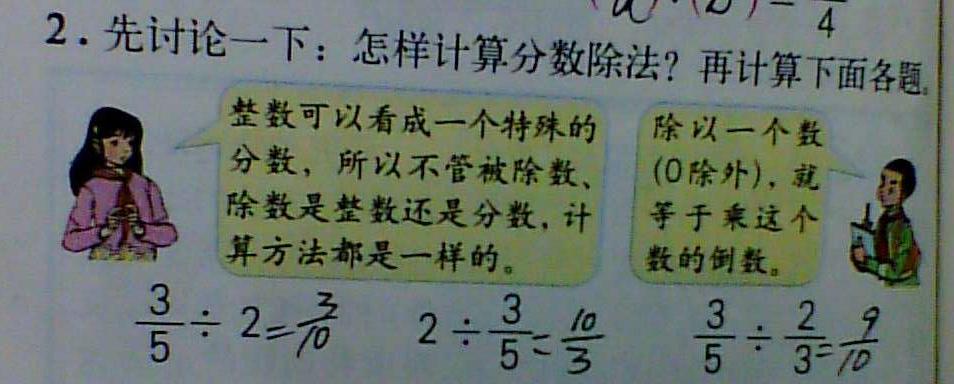 2. 先讨论一下：怎样计算分数除法？再计算下面各题。
整数可以看成一个特殊的
分数，所以不管被除数、
除数是整数还是分数，计
算方法都是一样的。
除以一个数
(0除外)，就
等于乘这个
数的倒数。
3/5 ÷ 2 = 3/10 2 ÷ 3/5 = 10/3 3/5 ÷ 2/3 = 9/10